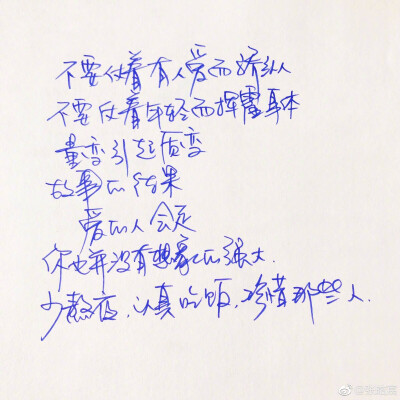 不要仗着有人爱而娇纵
不要仗着年轻而挥霍身体
量变引起质变
故事的结果
爱的人会走
你也并没有想象的强大.
少熬夜,认真吃饭,珍惜那些人.